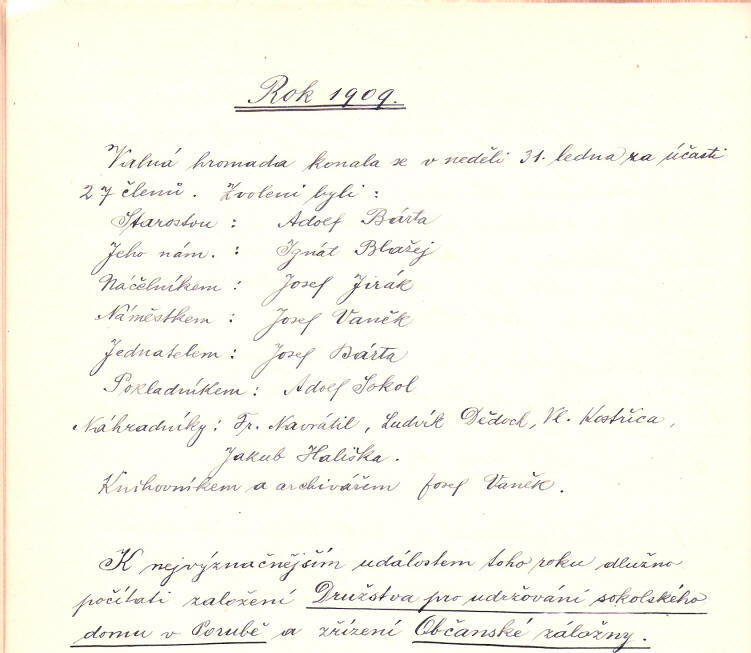 Rok 1909.
Valná hromada konala se v neděli 31. ledna za účasti
27 členů. Zvoleni byli :
Starostou : Adolf Bárta
Jeho nám. : Ignát Blažej
Náčelníkem : Josef Jirák
Náměstkem : Josef Vaněk
Jednatelem : Josef Bárta
Pokladníkem : Adolf Sokol
Náhradníky : Fr. Navrátil, Ludvík Dědoch, Vl. Kostřica,
Jakub Hališka.
Knihovníkem a archivářem Josef Vaněk.
K nejvýznačnějším událostem toho roku dlužno
počítati založení Družstva pro udržování sokolského
domu v Porubě a zřízení Občanské záložny.